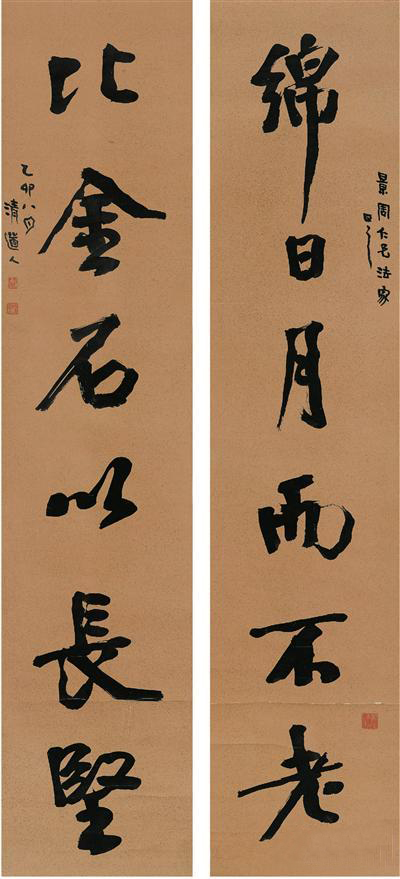 綿日月而不老
景周仁兄法家
正之
比金石以長堅
乙卯八月
清道人